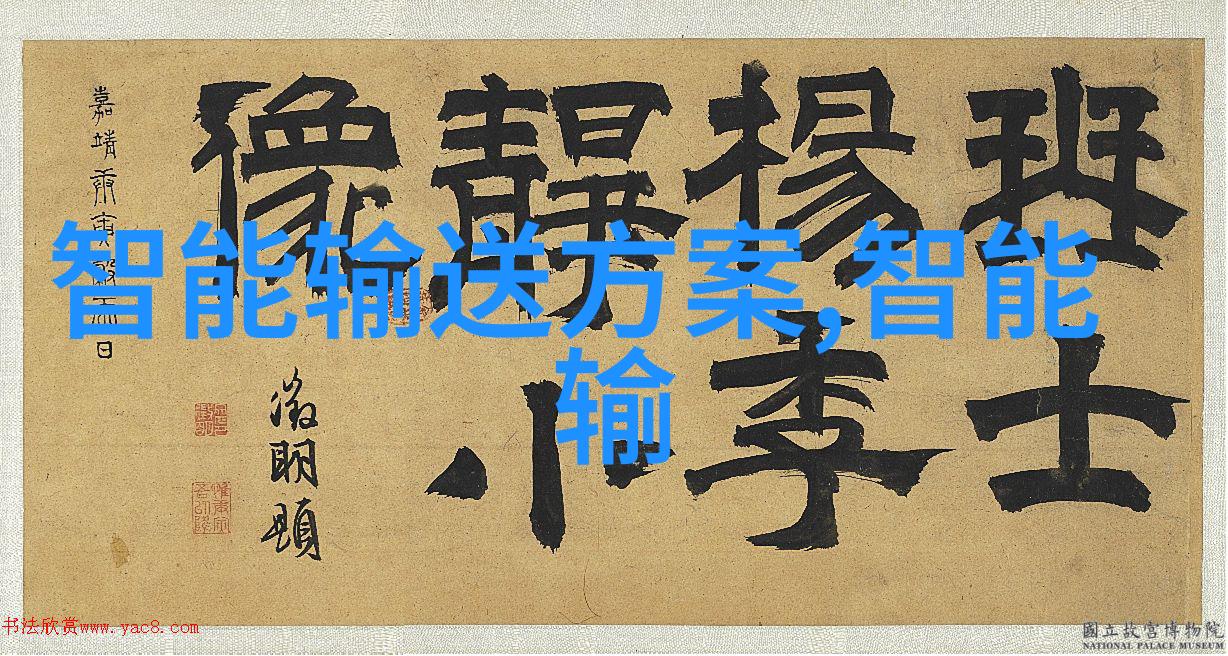 智能输送方案,智能
输
班士
楊季
靜小
像
徵明題
嘉靖庚寅 日
书法欣赏www.yac8.com
國立故宮博物院
NATIONAL PALACE MUSEUM